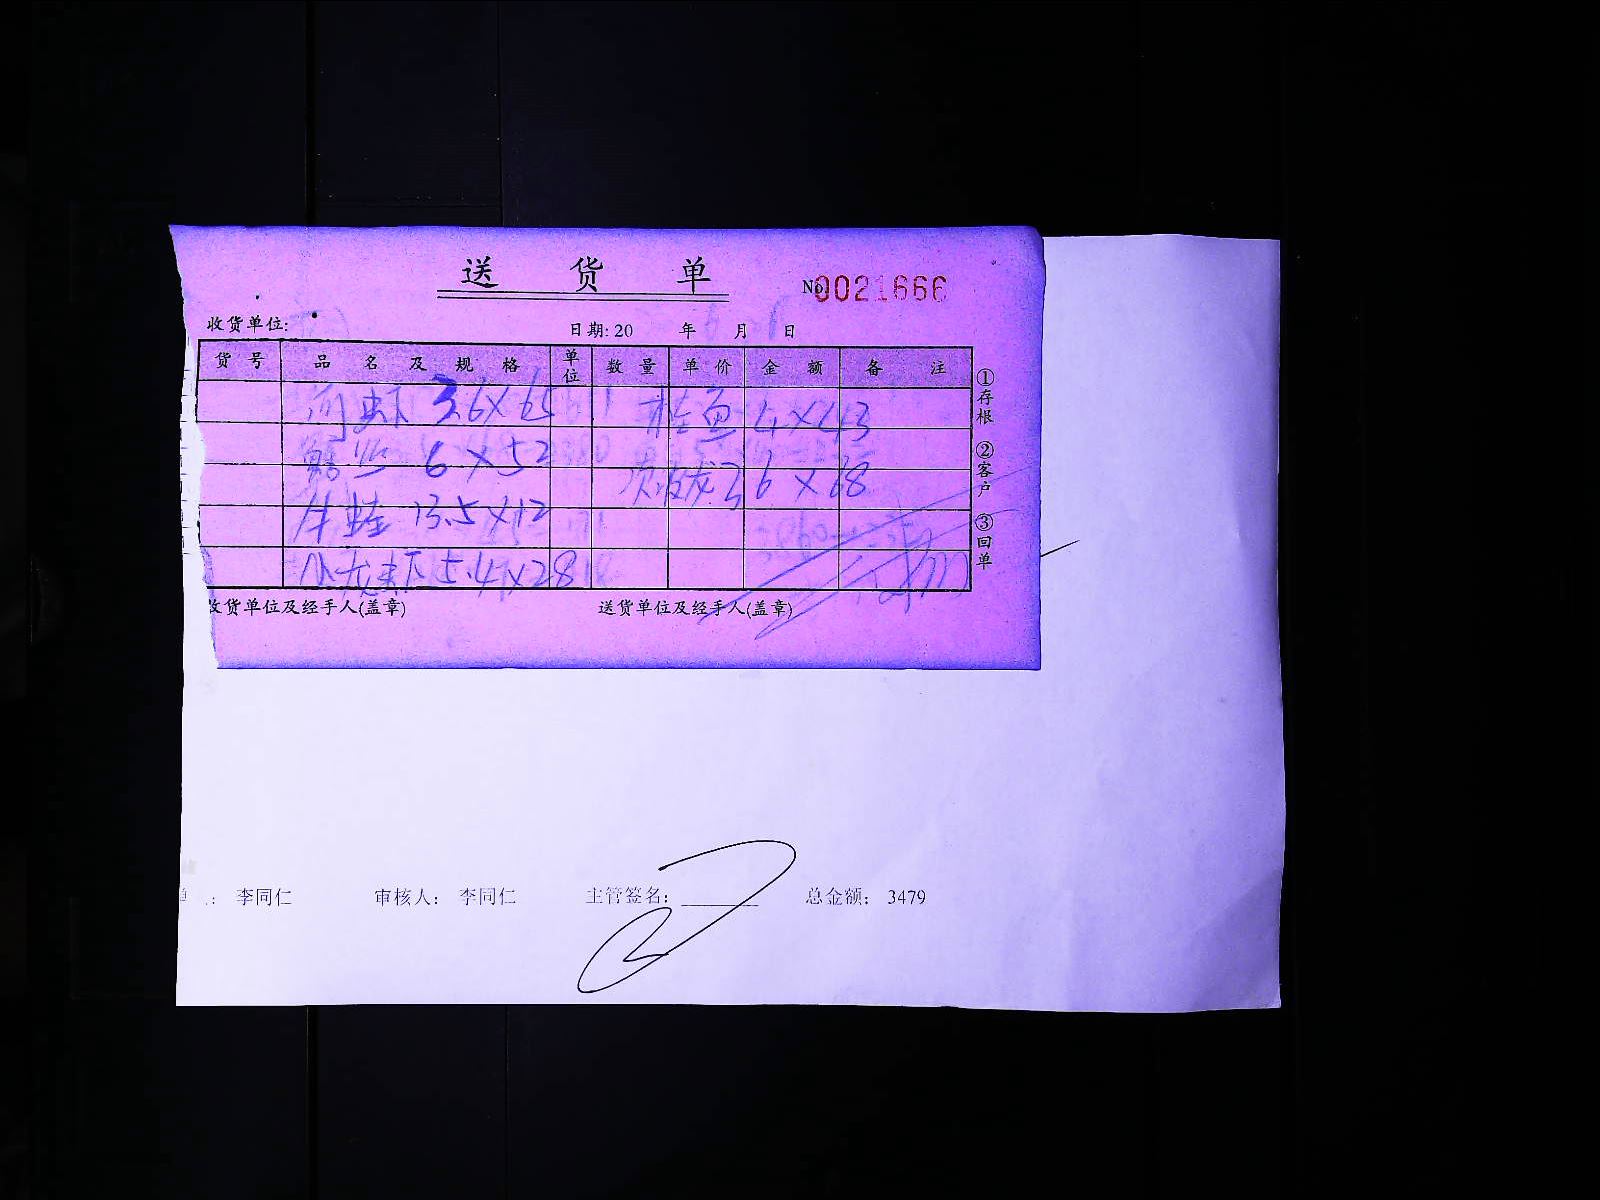 送 货 单
№0021666
收货单位: 日期: 20 年 6 月 日
货号 品名及规格 单位 数量 单价 金额 备注
河虾 3.6×65 桂鱼 4×43
鳝丝 6×52 6×68
牛蛙 13.5×12
小龙虾 5.4×28
①存根 ②客户 ③回单
收货单位及经手人(盖章) 送货单位及经手人(盖章)
李同仁 审核人: 李同仁 主管签名: 总金额: 3479